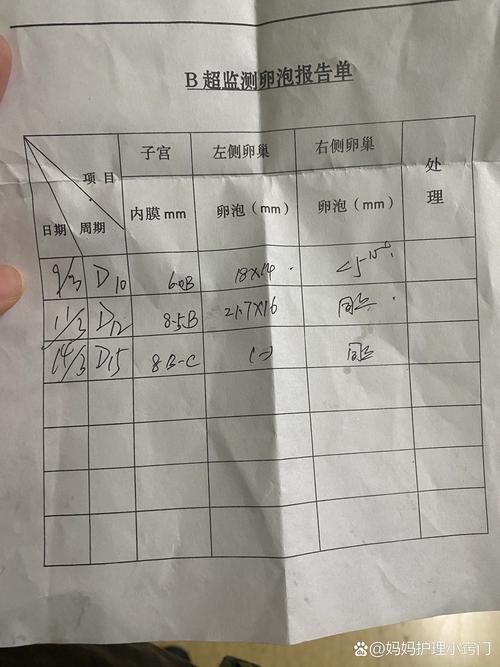 B超监测卵泡报告单
项目 日期 周期 子宫 内膜mm 左侧卵巢 卵泡（mm） 右侧卵巢 卵泡（mm） 处理
9/3 D10 6.0B 18×14 <5
11/3 D12 8.5B 21.7×16 同上
14/3 D15 8B-C (-) 同上
@妈妈护理小窍门